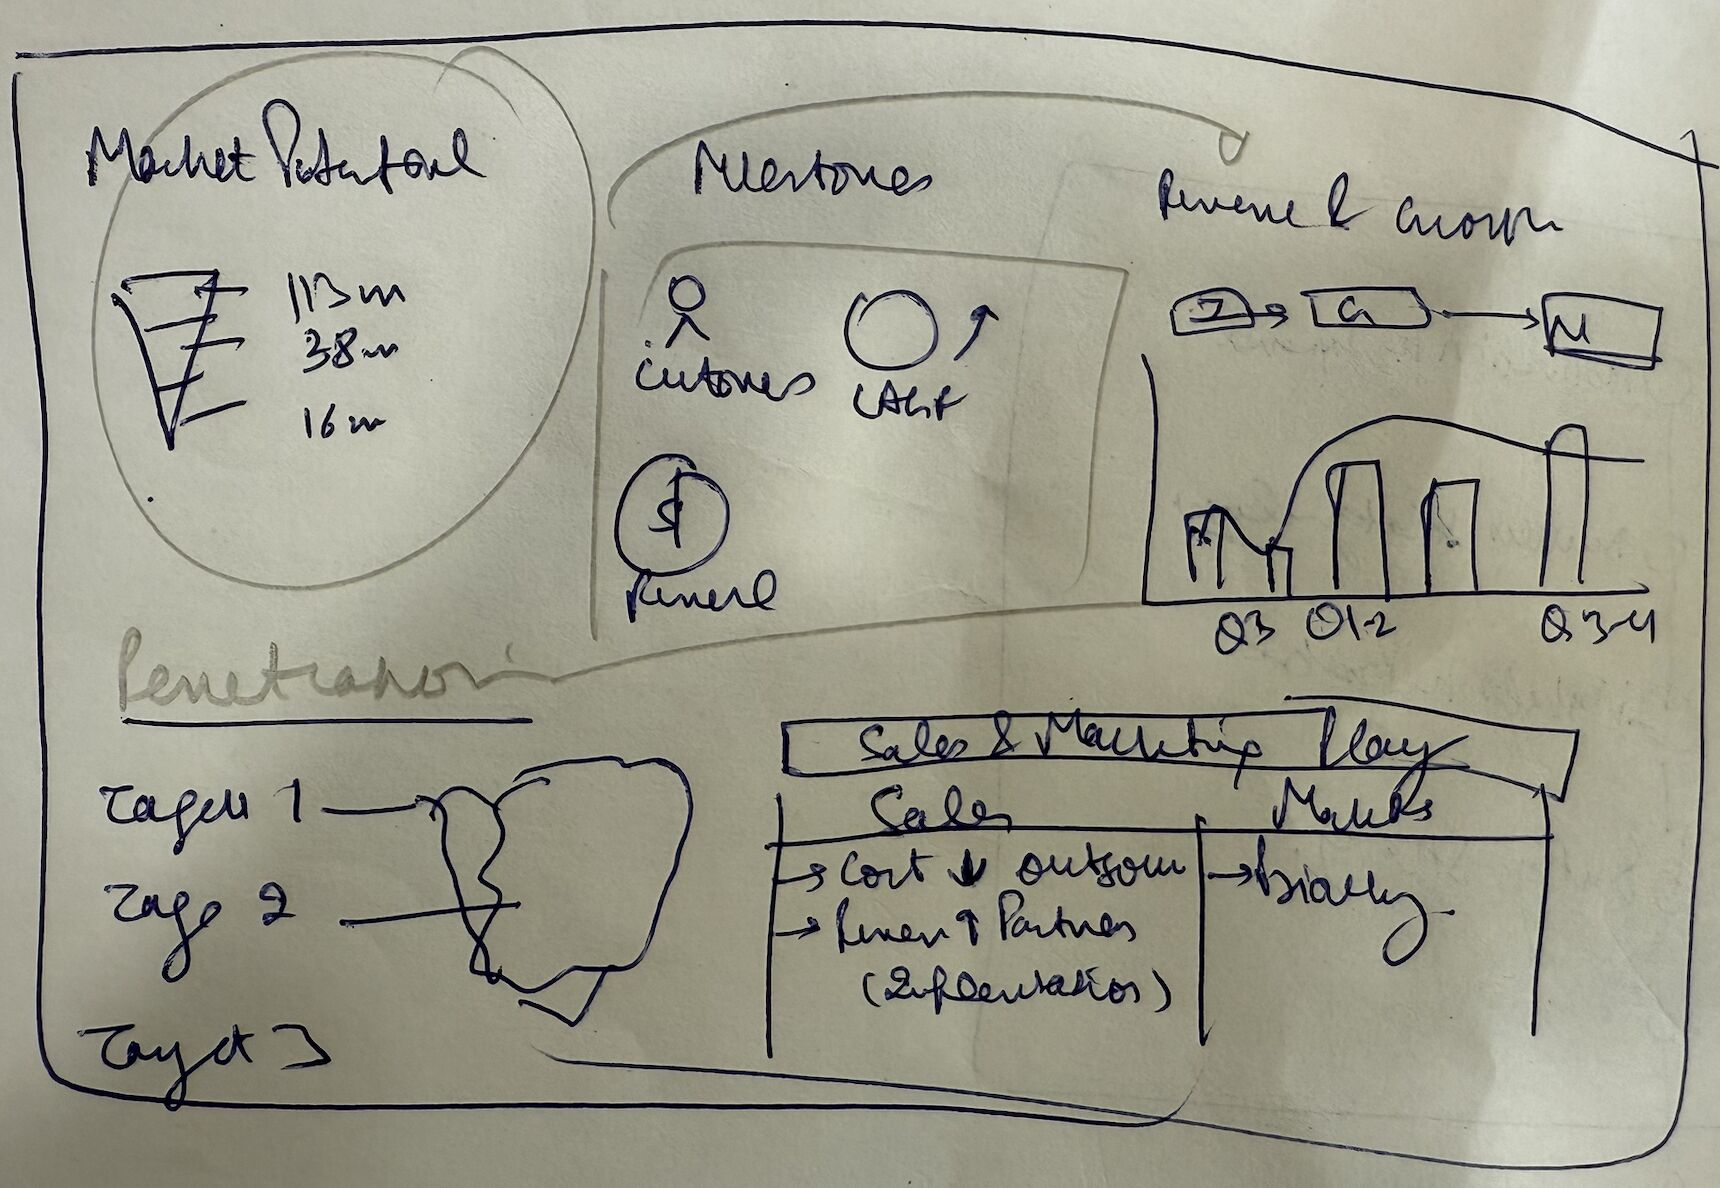 Market Potential
113m
38m
16m
Milestones
Customers
Revenue
Revenue & Growth
I
G
M
Q3 Q1-2 Q3-4
Penetration
Target 1
Target 2
Target 3
Sales & Marketing Play
Sales
→ Cost ↓ outsource
→ Revenue ↑ Partners
(Implementation)